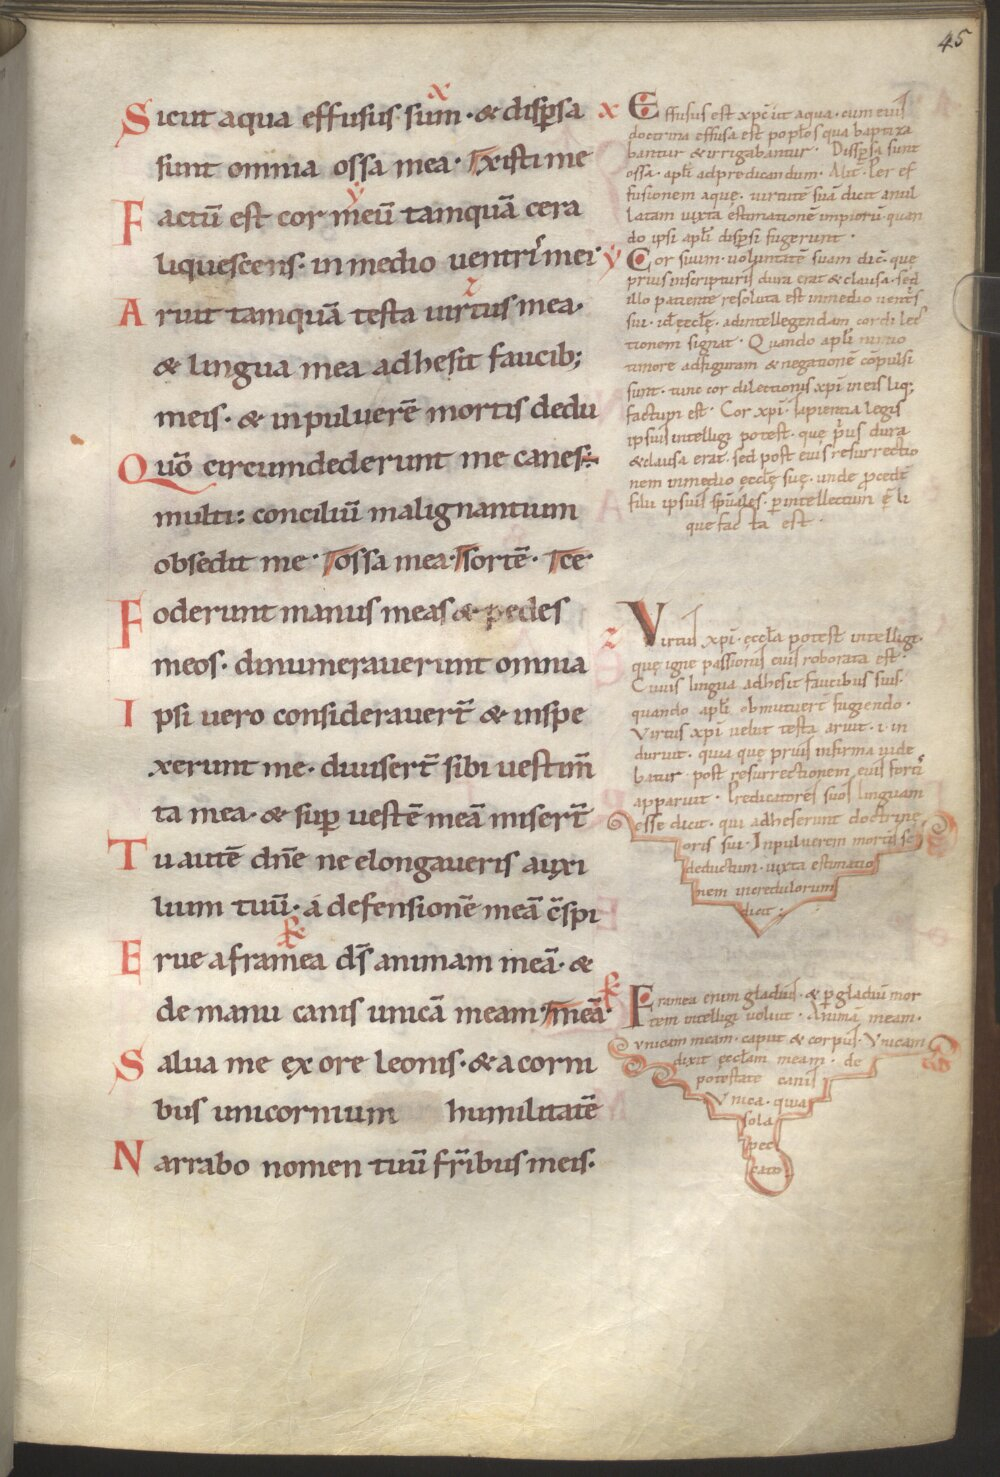 45
Sicut aqua effusus sum · & disp̱sa
sunt omnia ossa mea · xisti me
Factū est cor meū tamquā cera
liquescens · in medio uentri' mei ·
Aruit tamquā testa uirtus mea ·
& lingua mea adhesit faucib;
meis · & in puluerē mortis dedu
Quō circumdederunt me canes
multi: conciliū malignantum
obsedit me · ossa mea · sortē · ce ·
Foderunt manus meas & pedes
meos · dinumerauerunt omnia
Ipsi uero considerauert̄ & inspe
xerunt me · diuisert̄ sibi uestim̄
ta mea · & sup̱ uestē meā misert̄
Tu autē dn̄e ne elongaueris auxi
lium tuū · á defensionē meā c̄spi
Erue a framea ds̄ animam meā · &
de manu canis unicā meam meā ·
Salua me ex ore leonis · & a corni
bus unicornium humilitatē
Narrabo nomen tuū fr̄ibus meis ·
x
x Effusus est xp̄c ut aqua · cum eius
doctrina effusa est popl̄os qua baptiza
bantur & irrigabantur · Disp̱sa sunt
ossa · apl̄i ad predicandum · Alit̄ · Per ef
fusionem aquę · uirtutē suā dicit anul
latam iuxta estimationē impiorū quan
do ipsi apl̄i disp̱si fugerunt ·
y
y Cor suum · uoluntatē suam dic̄ · que
prius in scripturis dura erat & clausa · sed
illo patiente resoluta est in medio uent̄s
sui · id ęcclę · ad intellegendam cordi lec
tionem signat · Quando apl̄i nimio
timore ad fugam & negationē cōpulsi
sunt · tunc cor dilectionis xp̄i in eis liq;
factum est · Cor xp̄i · sapientia legis
ipsius intelligi potest · quę p'us dura
& clausa erat · sed post eius resurrectio
nem in medio ęcclę suę · unde p̱cedt̄
filii ipsius sp̄uales · p̱ intellectum ē li
que fac ta est ·
z
z Virtus xp̄i · ęccl̄a potest intelligi ·
quę igne passionis eius roborata est ·
Cuius lingua adhesit faucibus suis ·
quando apl̄i obmutuert̄ fugiendo ·
Virtus xp̄i uelut testa aruit · i · in
duruit · quia quę prius infirma uide
batur · post resurrectionem eius forti'
apparuit · Predicatores suos linguam
esse dicit · qui adheserunt doctrinę
oris sui · In puluerem mortis se
deductum · iuxta estimatio
nem incredulorum
dicit :
Framea enim gladius · & p̱ gladiū mor
tem intelligi uoluit · Animā meam ·
unicam meam · caput & corpus · Vnicam
dixit ęccl̄am meam · de
potestate canis
Vnica · quia
sola
pec
cato